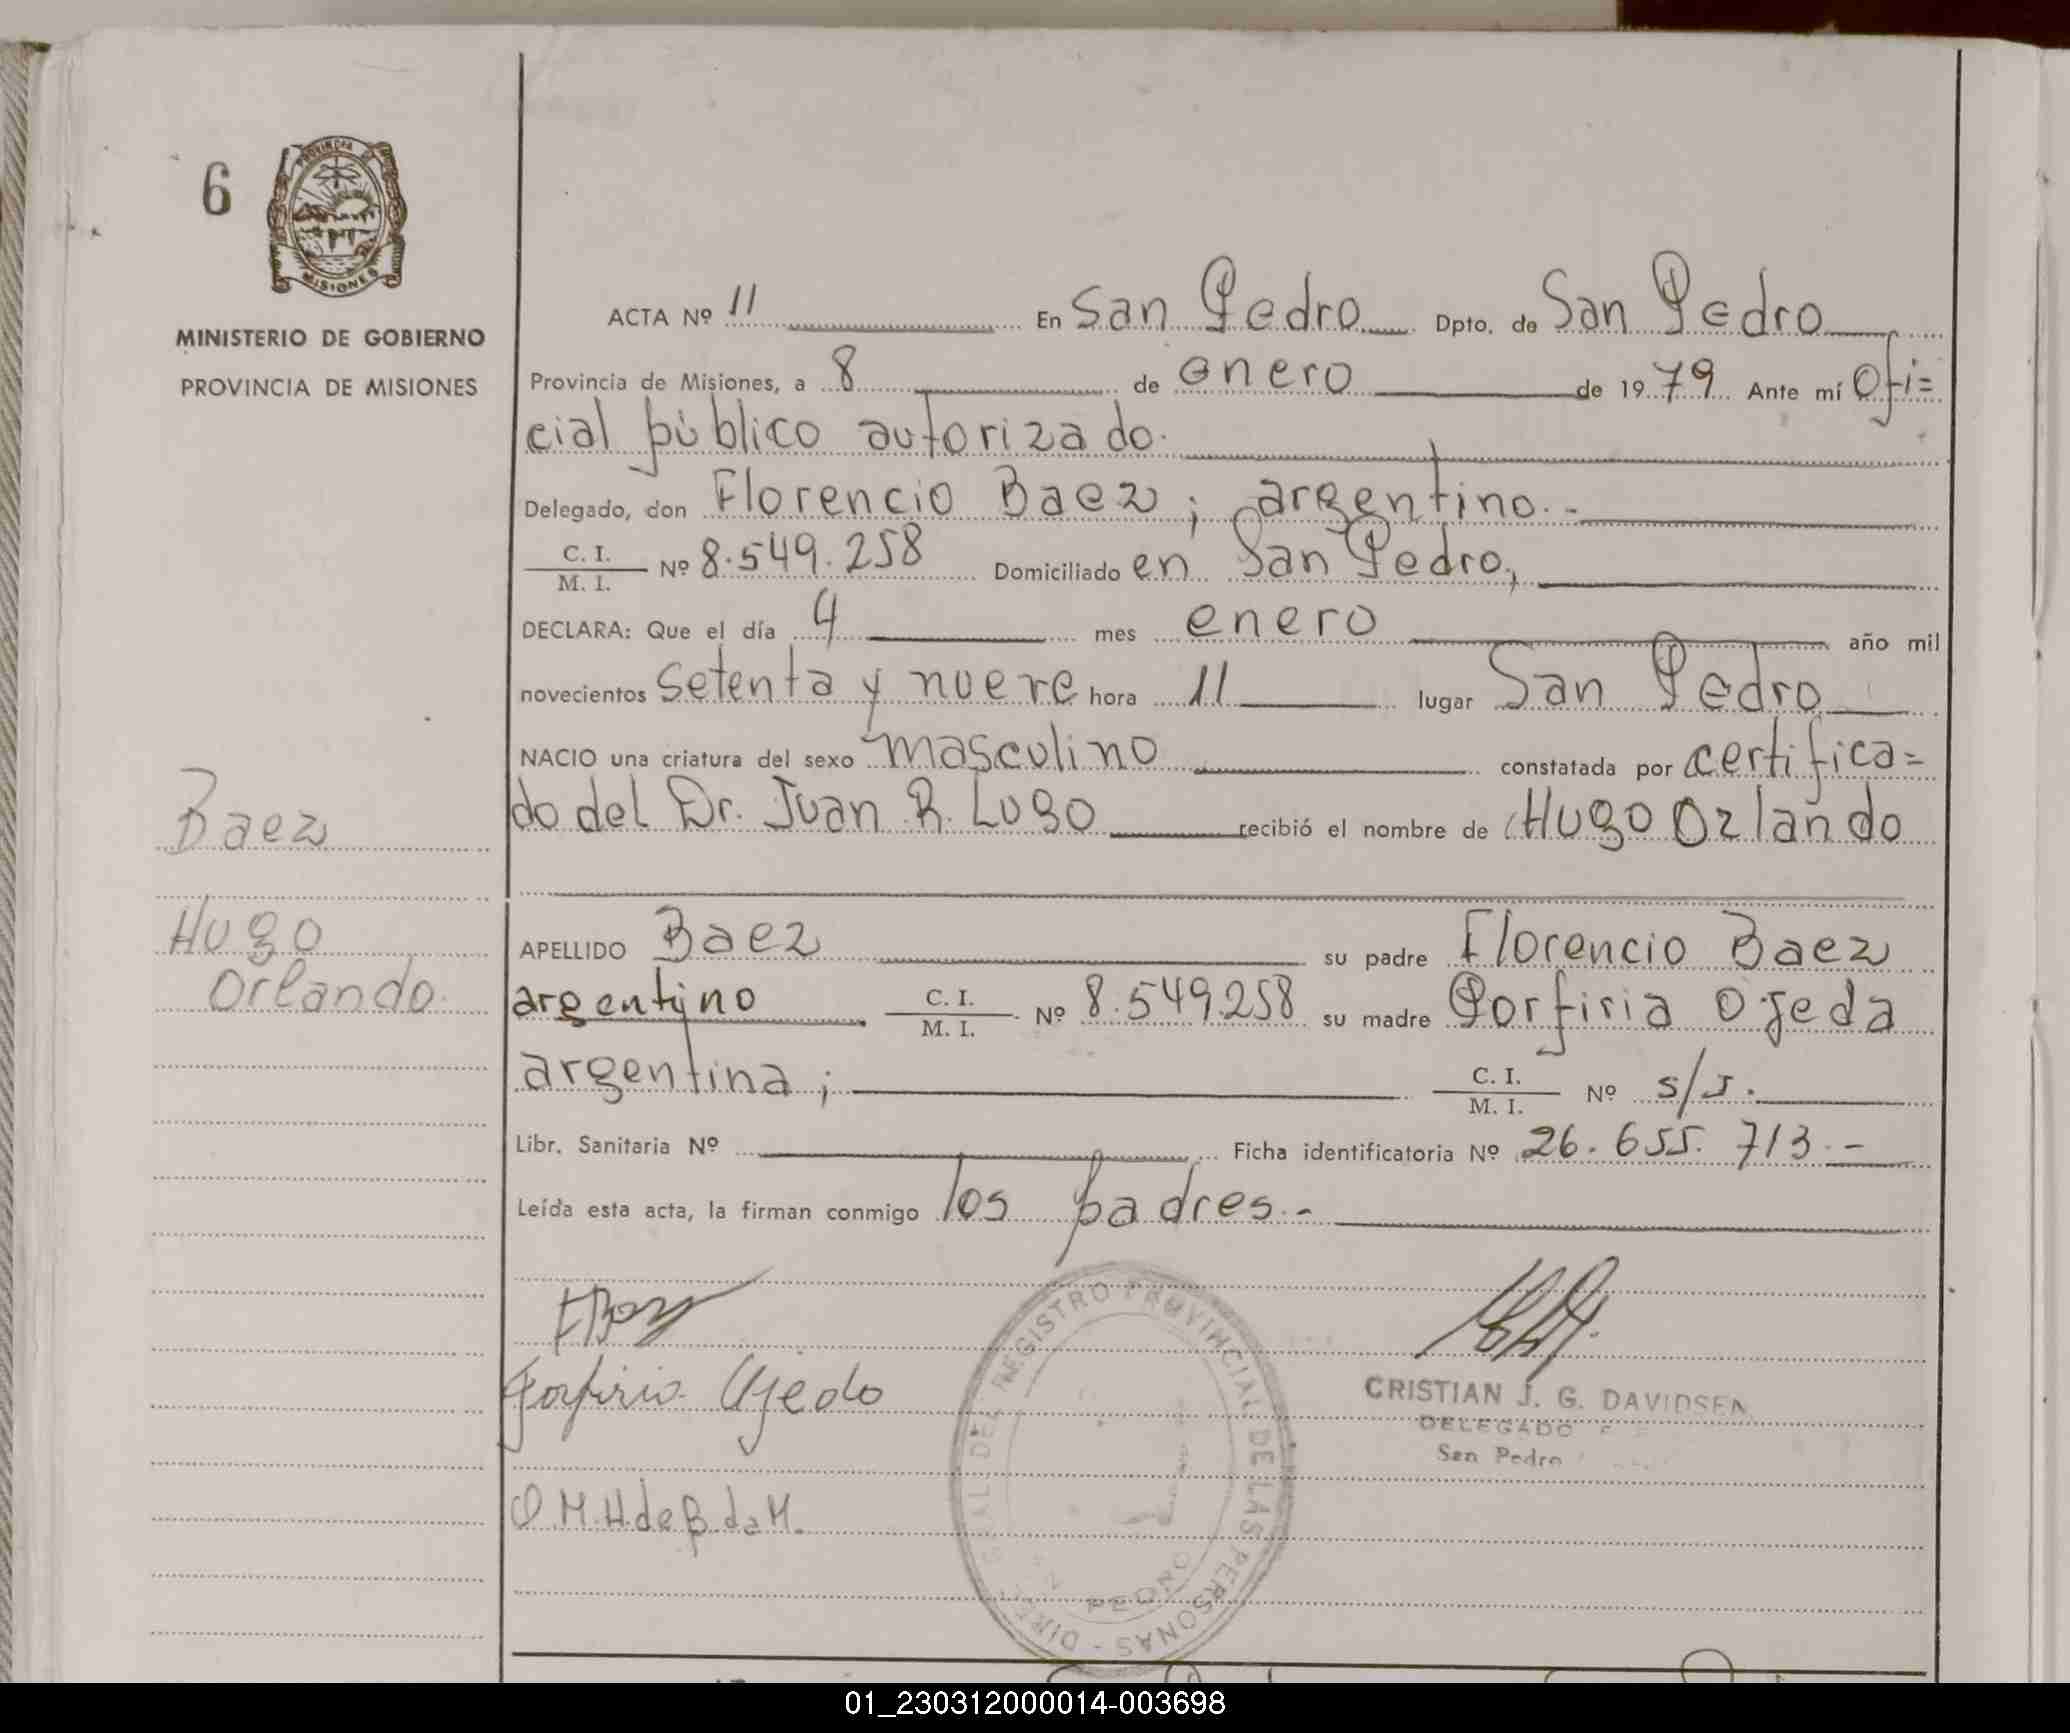 6
PROVINCIA DE
MISIONES
MINISTERIO DE GOBIERNO
PROVINCIA DE MISIONES
Baez
Hugo
Orlando.
ACTA Nº 11 En San Pedro Dpto. de San Pedro
Provincia de Misiones, a 8 de enero de 1979 Ante mí Ofi=
cial público autorizado.
Delegado, don Florencio Baez; argentino.-
C. I.
M. I. Nº 8.549.258 Domiciliado en San Pedro,
DECLARA: Que el día 4 mes enero año mil
novecientos setenta y nueve hora 11 lugar San Pedro
NACIO una criatura del sexo masculino constatada por certifica=
do del Dr. Juan R. Lugo recibió el nombre de Hugo Orlando
APELLIDO Baez su padre Florencio Baez
argentino C. I.
M. I. Nº 8.549.258 su madre Porfiria Ojeda
argentina; C. I.
M. I. Nº s/J.
Libr. Sanitaria Nº Ficha identificatoria Nº 26.655.713.-
Leída esta acta, la firman conmigo los padres.-
Porfiria Ojeda
O.M.H.deB.deM.
REGISTRO PROVINCIAL DE LAS PERSONAS
PEDRO
CRISTIAN J. G. DAVIDSEN
DELEGADO
San Pedro
01_230312000014-003698